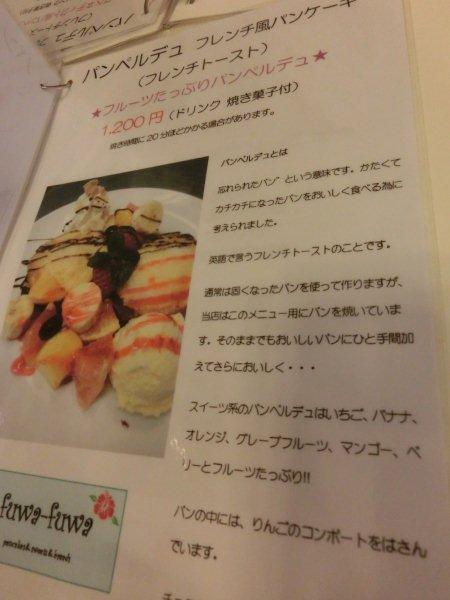 パンペルデュ フレンチ風パンケーキ
(フレンチトースト)
★フルーツたっぷりパンペルデュ★
1,200円(ドリンク 焼き菓子付)
焼き時間に20分ほどかかる場合があります。
パンペルデュとは
忘れられたパン"という意味です。かたくて
カチカチになったパンをおいしく食べる為に
考えられました。
英語で言うフレンチトーストのことです。
通常は固くなったパンを使って作りますが、
当店はこのメニュー用にパンを焼いていま
す。そのままでもおいしいパンにひと手間加
えてさらにおいしく・・・
スイーツ系のパンペルデュはいちご、バナナ、
オレンジ、グレープフルーツ、マンゴー、ベ
リーとフルーツたっぷり!!
パンの中には、りんごのコンポートをはさん
でいます。
fuwa-fuwa